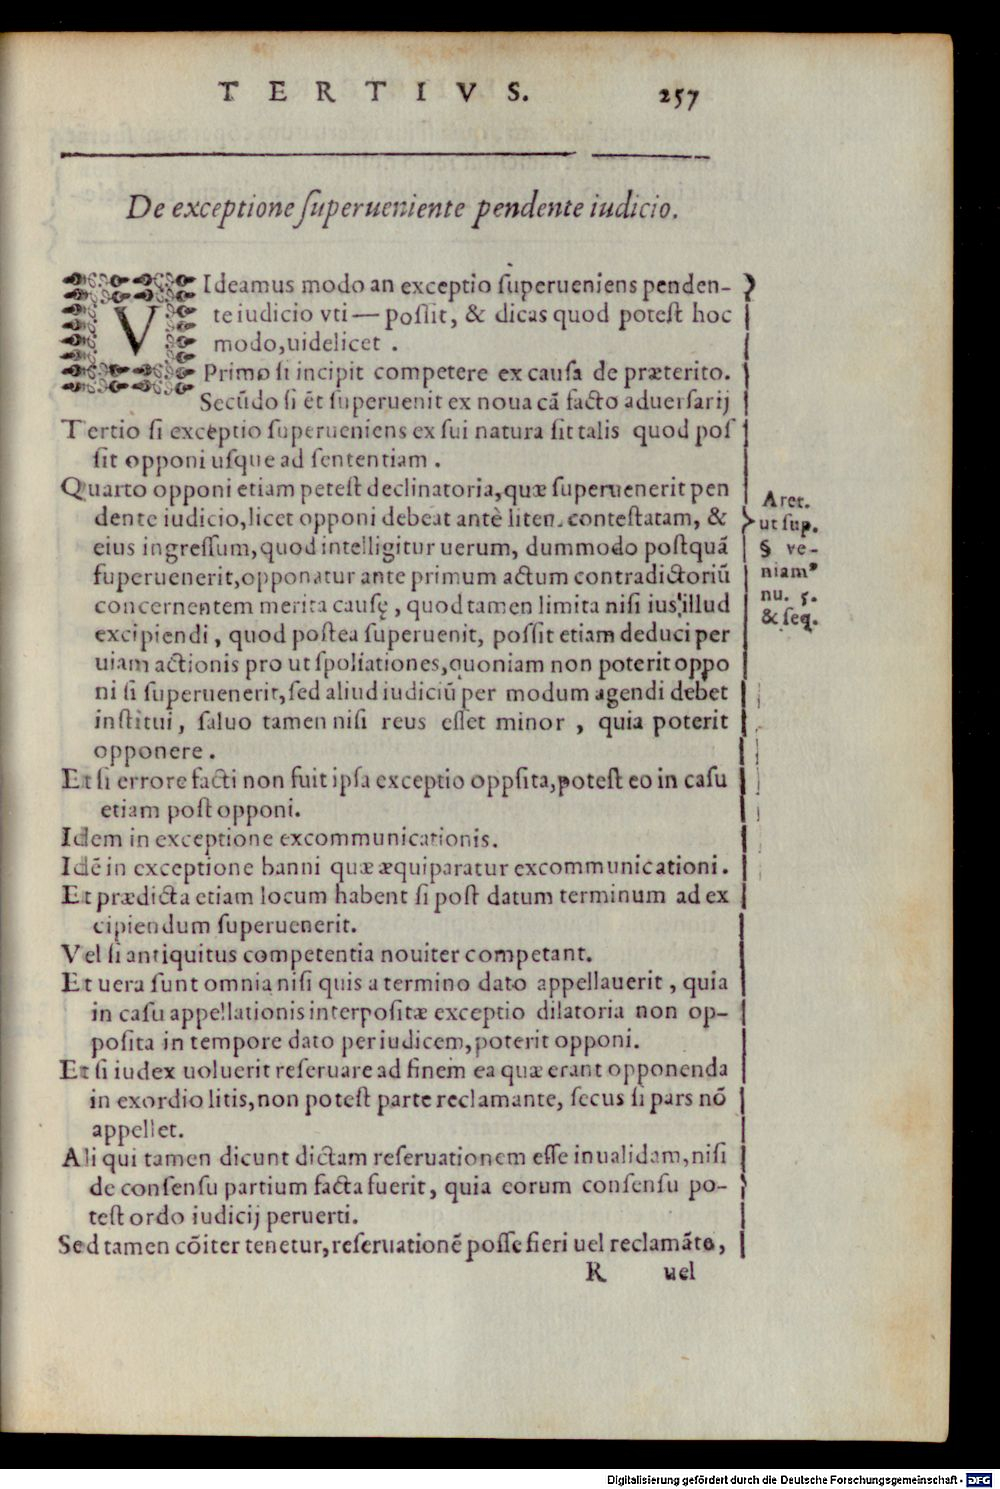 TERTIVS. 257
De exceptione ſuperueniente pendente iudicio.
VIdeamus modo an exceptio ſuperueniens penden-
te iudicio vti— poſſit, & dicas quod poteſt hoc
modo, uidelicet .
Primo ſi incipit competere ex cauſa de præterito.
Secūdo ſi ēt ſuperuenit ex noua cā facto aduerſarij
Tertio ſi exceptio ſuperueniens ex ſui natura ſit talis quod poſ
ſit opponi uſque ad ſententiam .
Quarto opponi etiam peteſt declinatoria, quæ ſuperuenerit pen
dente iudicio, licet opponi debeat antè liten. conteſtatam, &
eius ingreſſum, quod intelligitur uerum, dummodo poſtquā
ſuperuenerit, opponatur ante primum actum contradictoriū
concernentem merita cauſę, quod tamen limita niſi ius illud
excipiendi, quod poſtea ſuperuenit, poſſit etiam deduci per
uiam actionis pro ut ſpoliationes, quoniam non poterit oppo
ni ſi ſuperuenerit, ſed aliud iudiciū per modum agendi debet
inſtitui, ſaluo tamen niſi reus eſſet minor , quia poterit
opponere .
Et ſi errore facti non fuit ipſa exceptio oppſita, poteſt eo in caſu
etiam poſt opponi.
Idem in exceptione excommunicationis.
Idē in exceptione banni quæ æquiparatur excommunicationi.
Et prædicta etiam locum habent ſi poſt datum terminum ad ex
cipiendum ſuperuenerit.
Vel ſi antiquitus competentia nouiter competant.
Et uera ſunt omnia niſi quis a termino dato appellauerit, quia
in caſu appellationis interpoſitæ exceptio dilatoria non op-
poſita in tempore dato per iudicem, poterit opponi.
Et ſi iudex uoluerit reſeruare ad finem ea quæ erant opponenda
in exordio litis, non poteſt parte reclamante, ſecus ſi pars nō
appellet.
Ali qui tamen dicunt dictam reſeruationem eſſe inualidam, niſi
de conſenſu partium facta fuerit, quia eorum conſenſu po-
teſt ordo iudicij peruerti.
Sed tamen cōiter tenetur, reſeruationē poſſe fieri uel reclamāte,
R uel
Aret.
ut ſup.
§ ve-
niamꝰ
nu. 5.
& ſeq.
Digitalisierung gefördert durch die Deutsche Forschungsgemeinschaft - DFG